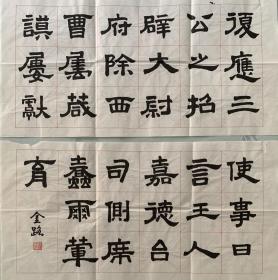 復應三
公之招
辟大尉
府除西
曹屬葴
謨屢獻
使事日
言王人
嘉德台
司側席
蠢爾葷
育
金